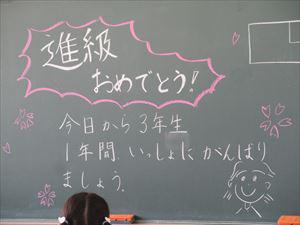 進級
おめでとう!
今日から3年生
1年間、いっしょに がんばり
ましょう。